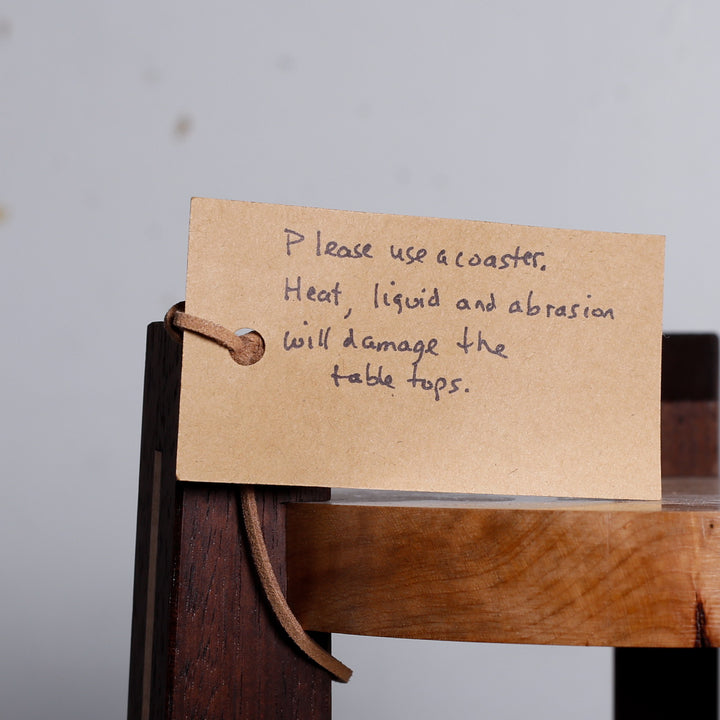 Please use a coaster.
Heat, liquid and abrasion
will damage the
table tops.